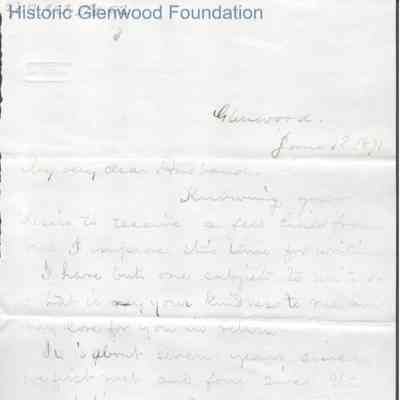 Historic Glenwood Foundation
Glenwood.
June 18
My very dear Husband
Knowing your
desire to receive a few lines from
me I improve this time for
I have but one subject to
that is your kindness to me and
my love for you in return.
It is about seven years since
we first met and four since